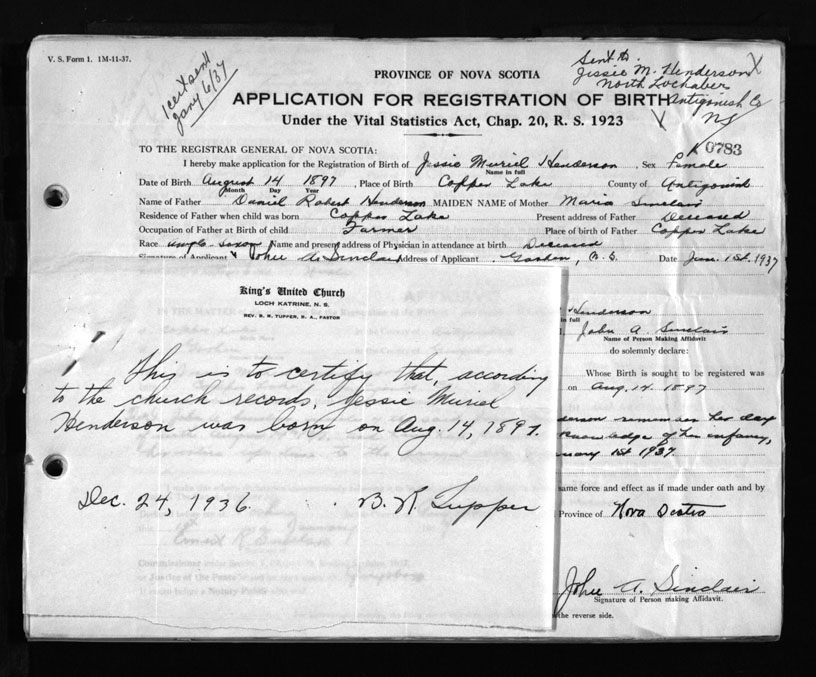 V. S. Form 1. 1M-11-37.
1 cert sent
Jany 6/37
Sent to
Jessie M. Henderson X
North Lochaber
Antigonish Co
NS
PROVINCE OF NOVA SCOTIA
APPLICATION FOR REGISTRATION OF BIRTH
Under the Vital Statistics Act, Chap. 20, R. S. 1923
0783
TO THE REGISTRAR GENERAL OF NOVA SCOTIA:
I hereby make application for the Registration of Birth of Jessie Muriel Henderson, Sex Female
Name in full
Date of Birth August 14 1897, Place of Birth Copper Lake County of Antigonish
Month Day Year
Name of Father Daniel Robert Henderson MAIDEN NAME of Mother Maria Sinclair
Residence of Father when child was born Copper Lake Present address of Father Deceased
Occupation of Father at Birth of child Farmer Place of birth of Father Copper Lake
Race Anglo Saxon Name and present address of Physician in attendance at birth Deceased
Signature of Applicant John A. Sinclair Address of Applicant Goshen, N. S. Date Jan. 1st. 1937
King's United Church
LOCH KATRINE, N. S.
REV. B. R. TUPPER, B. A., PASTOR
This is to certify that, according
to the church records, Jessie Muriel
Henderson was born on Aug. 14, 1897.
Dec. 24, 1936. B. R. Tupper
Henderson
in full
John A. Sinclair
Name of Person Making Affidavit
do solemnly declare:
Whose Birth is sought to be registered was
on Aug. 14. 1897
remember her day
knowledge of her infancy,
1st 1937
same force and effect as if made under oath and by
Province of Nova Scotia
John A. Sinclair
Signature of Person making Affidavit.
the reverse side.